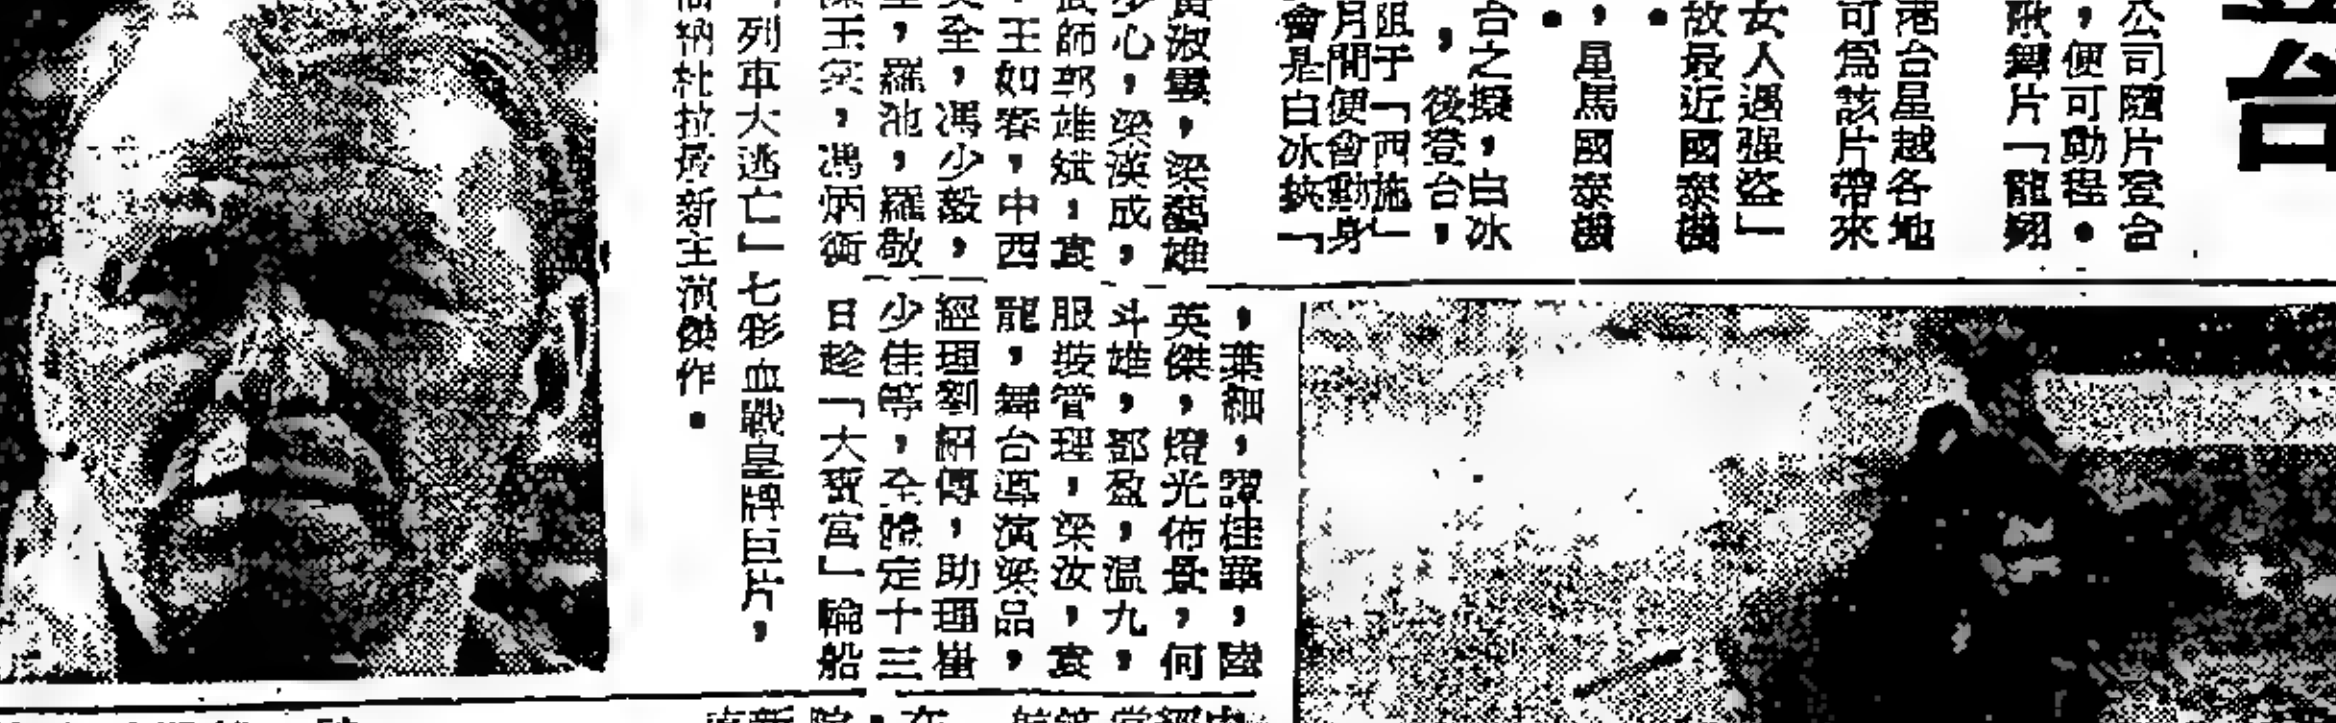 台
公司隨片登台
，便可動程。
歌舞片「龍翔
港台星越各地
可爲該片帶來
女人遇强盜」
故最近國泰機
，星馬國泰機
台之擬，白冰
，後登台，
阻于「西施」
月間便會動身
會是白冰挾「
淑雲，梁藝雄
心，梁漢成，
師郭雄斌，袁
王如春，中西
全，馮少毅，
，羅池，羅敬
玉英，馮炳衡
，葉細，譚桂華，陸
英傑，燈光佈景，何
斗雄，鄧盈，温九，
服裝管理，梁汝，袁
龍，舞台導演梁品，
經理劉紹傳，助理崔
少佳等，全體定十三
日趁「大寶宮」輪船
列車大逃亡」七彩血戰皇牌巨片，
納杜拉最新主演傑作。